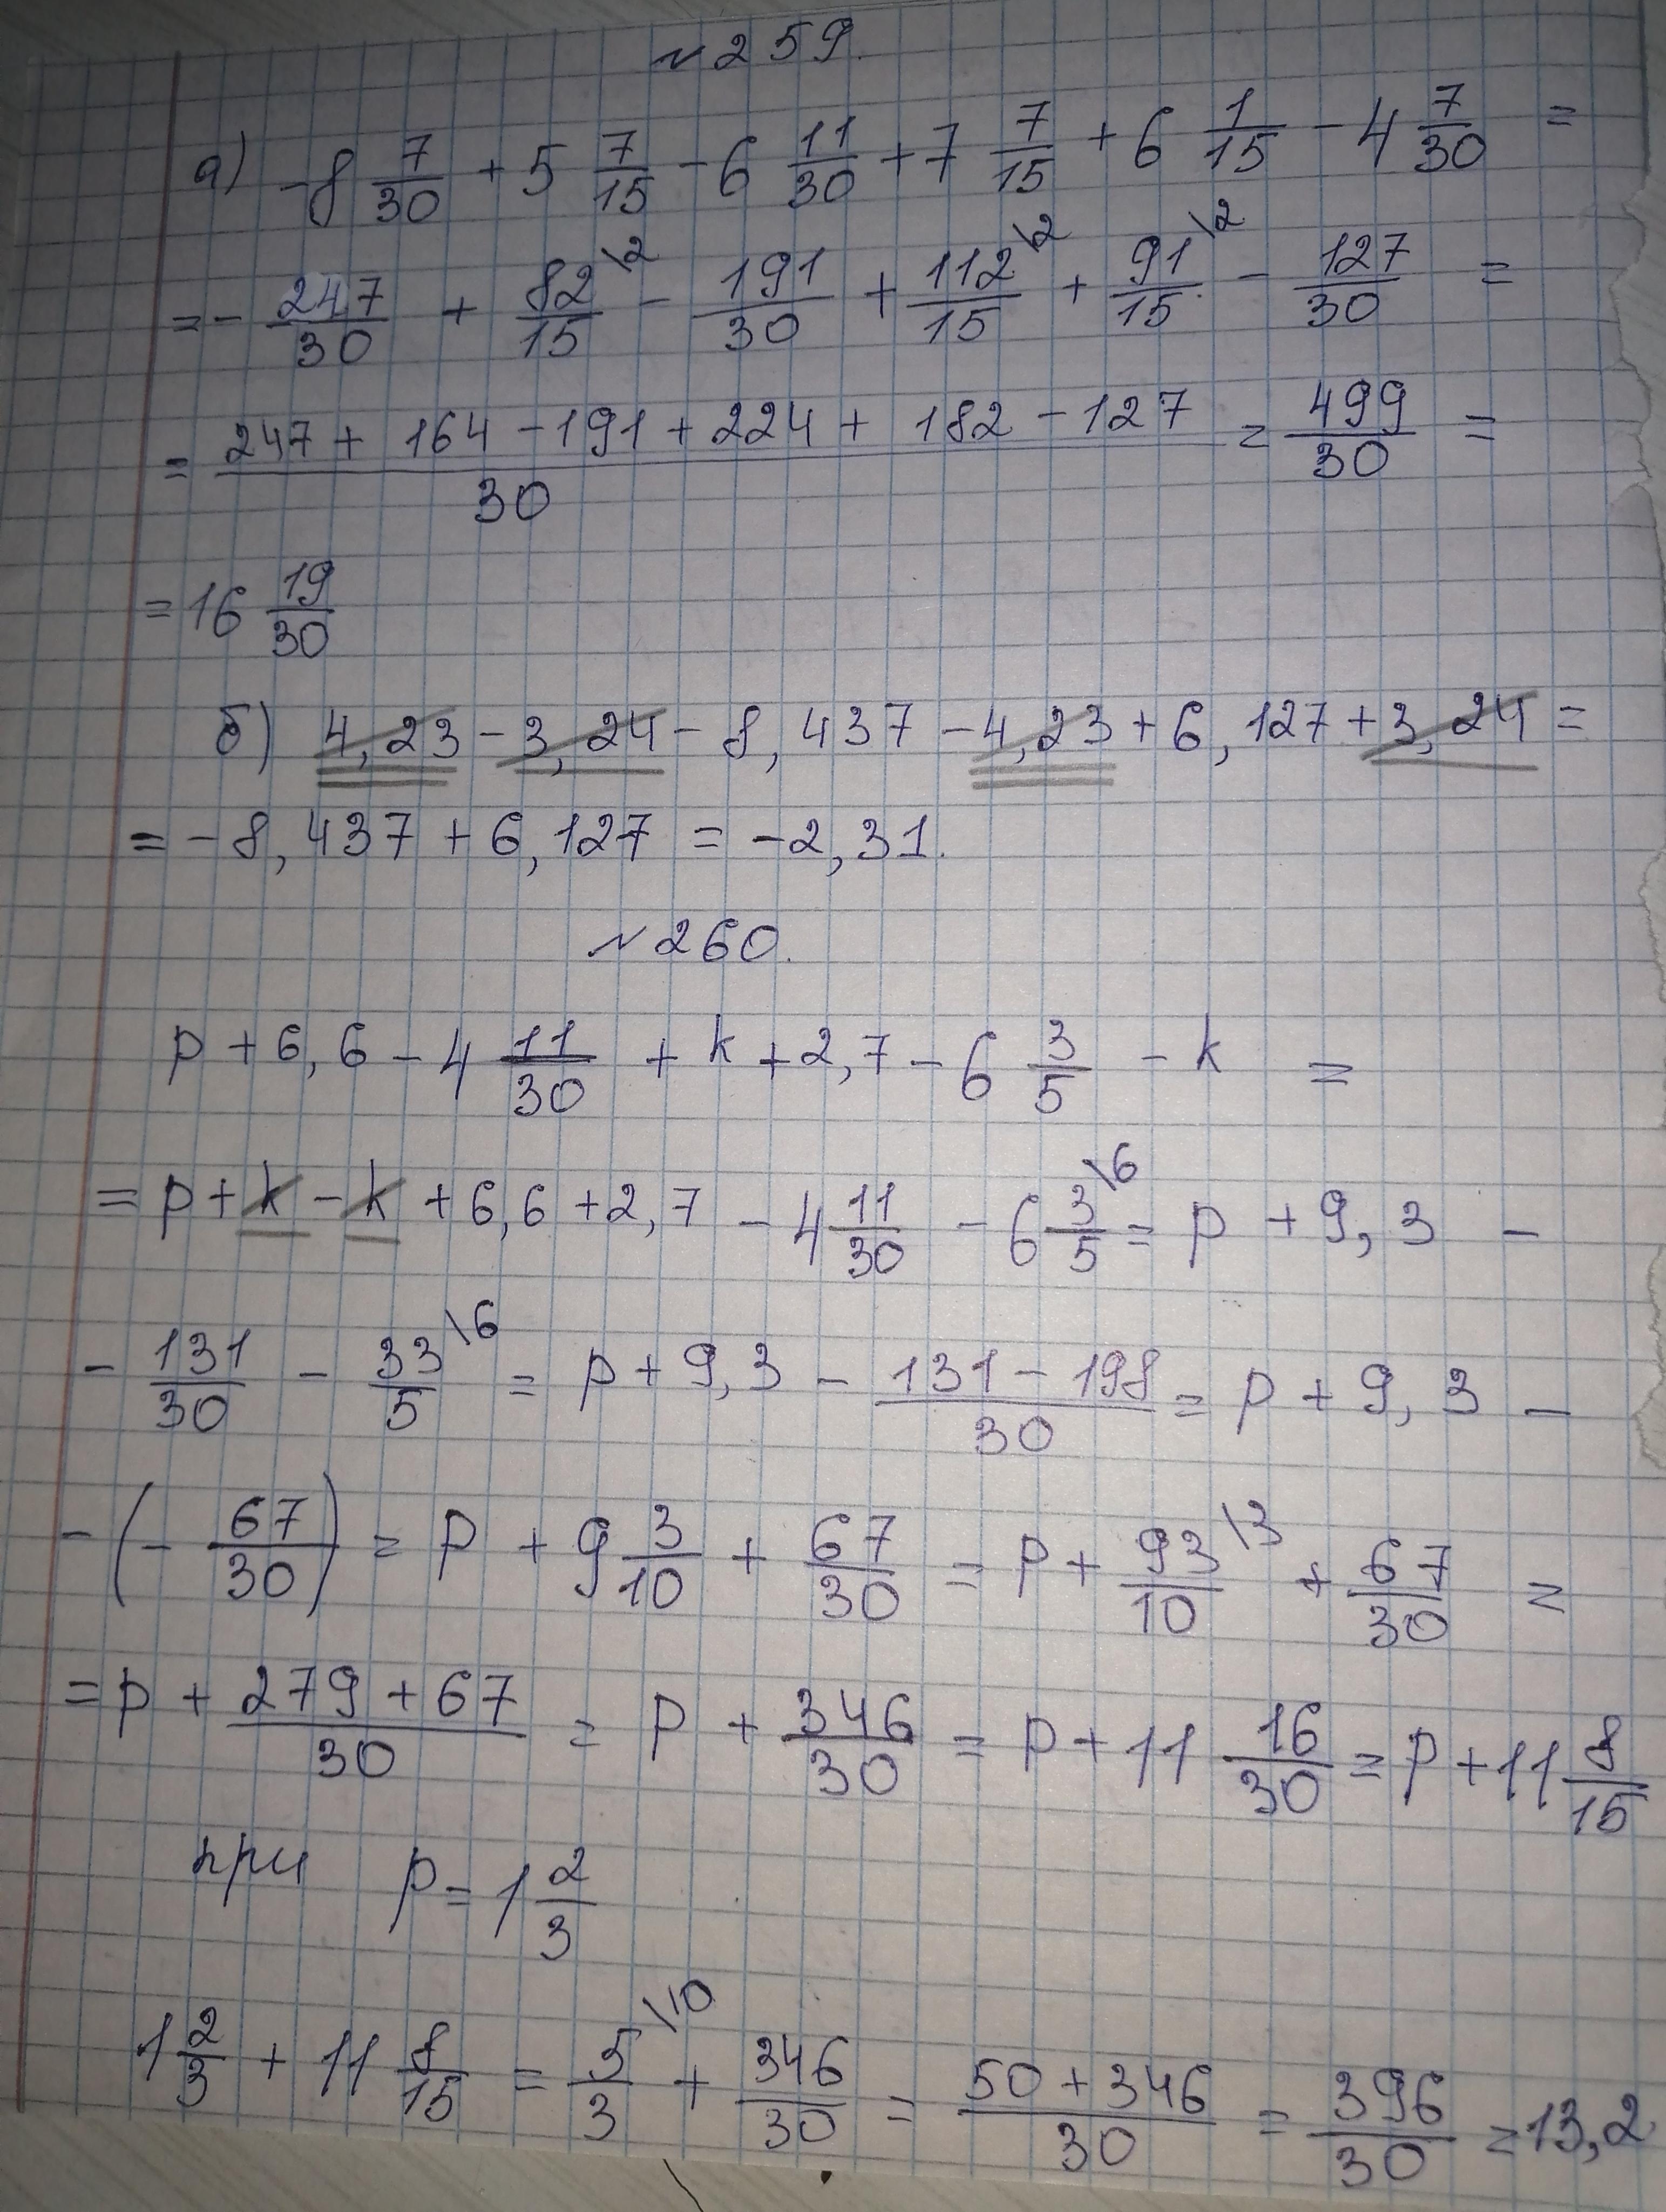 №259.
а) -8 7/30 + 5 7/15 - 6 11/30 + 7 7/15 + 6 1/15 - 4 7/30 =
= - 247/30 + 82/15 \2 - 191/30 + 112/15 \2 + 91/15 \2 - 127/30 =
= (247 + 164 - 191 + 224 + 182 - 127)/30 = 499/30 =
= 16 19/30
б) 4,23 - 3,24 - 8,437 - 4,23 + 6,127 + 3,24 =
= -8,437 + 6,127 = -2,31.
№260.
p + 6,6 - 4 11/30 + k + 2,7 - 6 3/5 - k =
= p + k - k + 6,6 + 2,7 - 4 11/30 - 6 3/5 \6 = p + 9,3 -
- 131/30 - 33/5 \6 = p + 9,3 - (131 - 198)/30 = p + 9,3 -
- (- 67/30) = p + 9 3/10 + 67/30 = p + 93/10 \3 + 67/30 =
= p + (279 + 67)/30 = p + 346/30 = p + 11 16/30 = p + 11 8/15
при p = 1 2/3
1 2/3 + 11 8/15 = 5/3 \10 + 346/30 = (50 + 346)/30 = 396/30 = 13,2